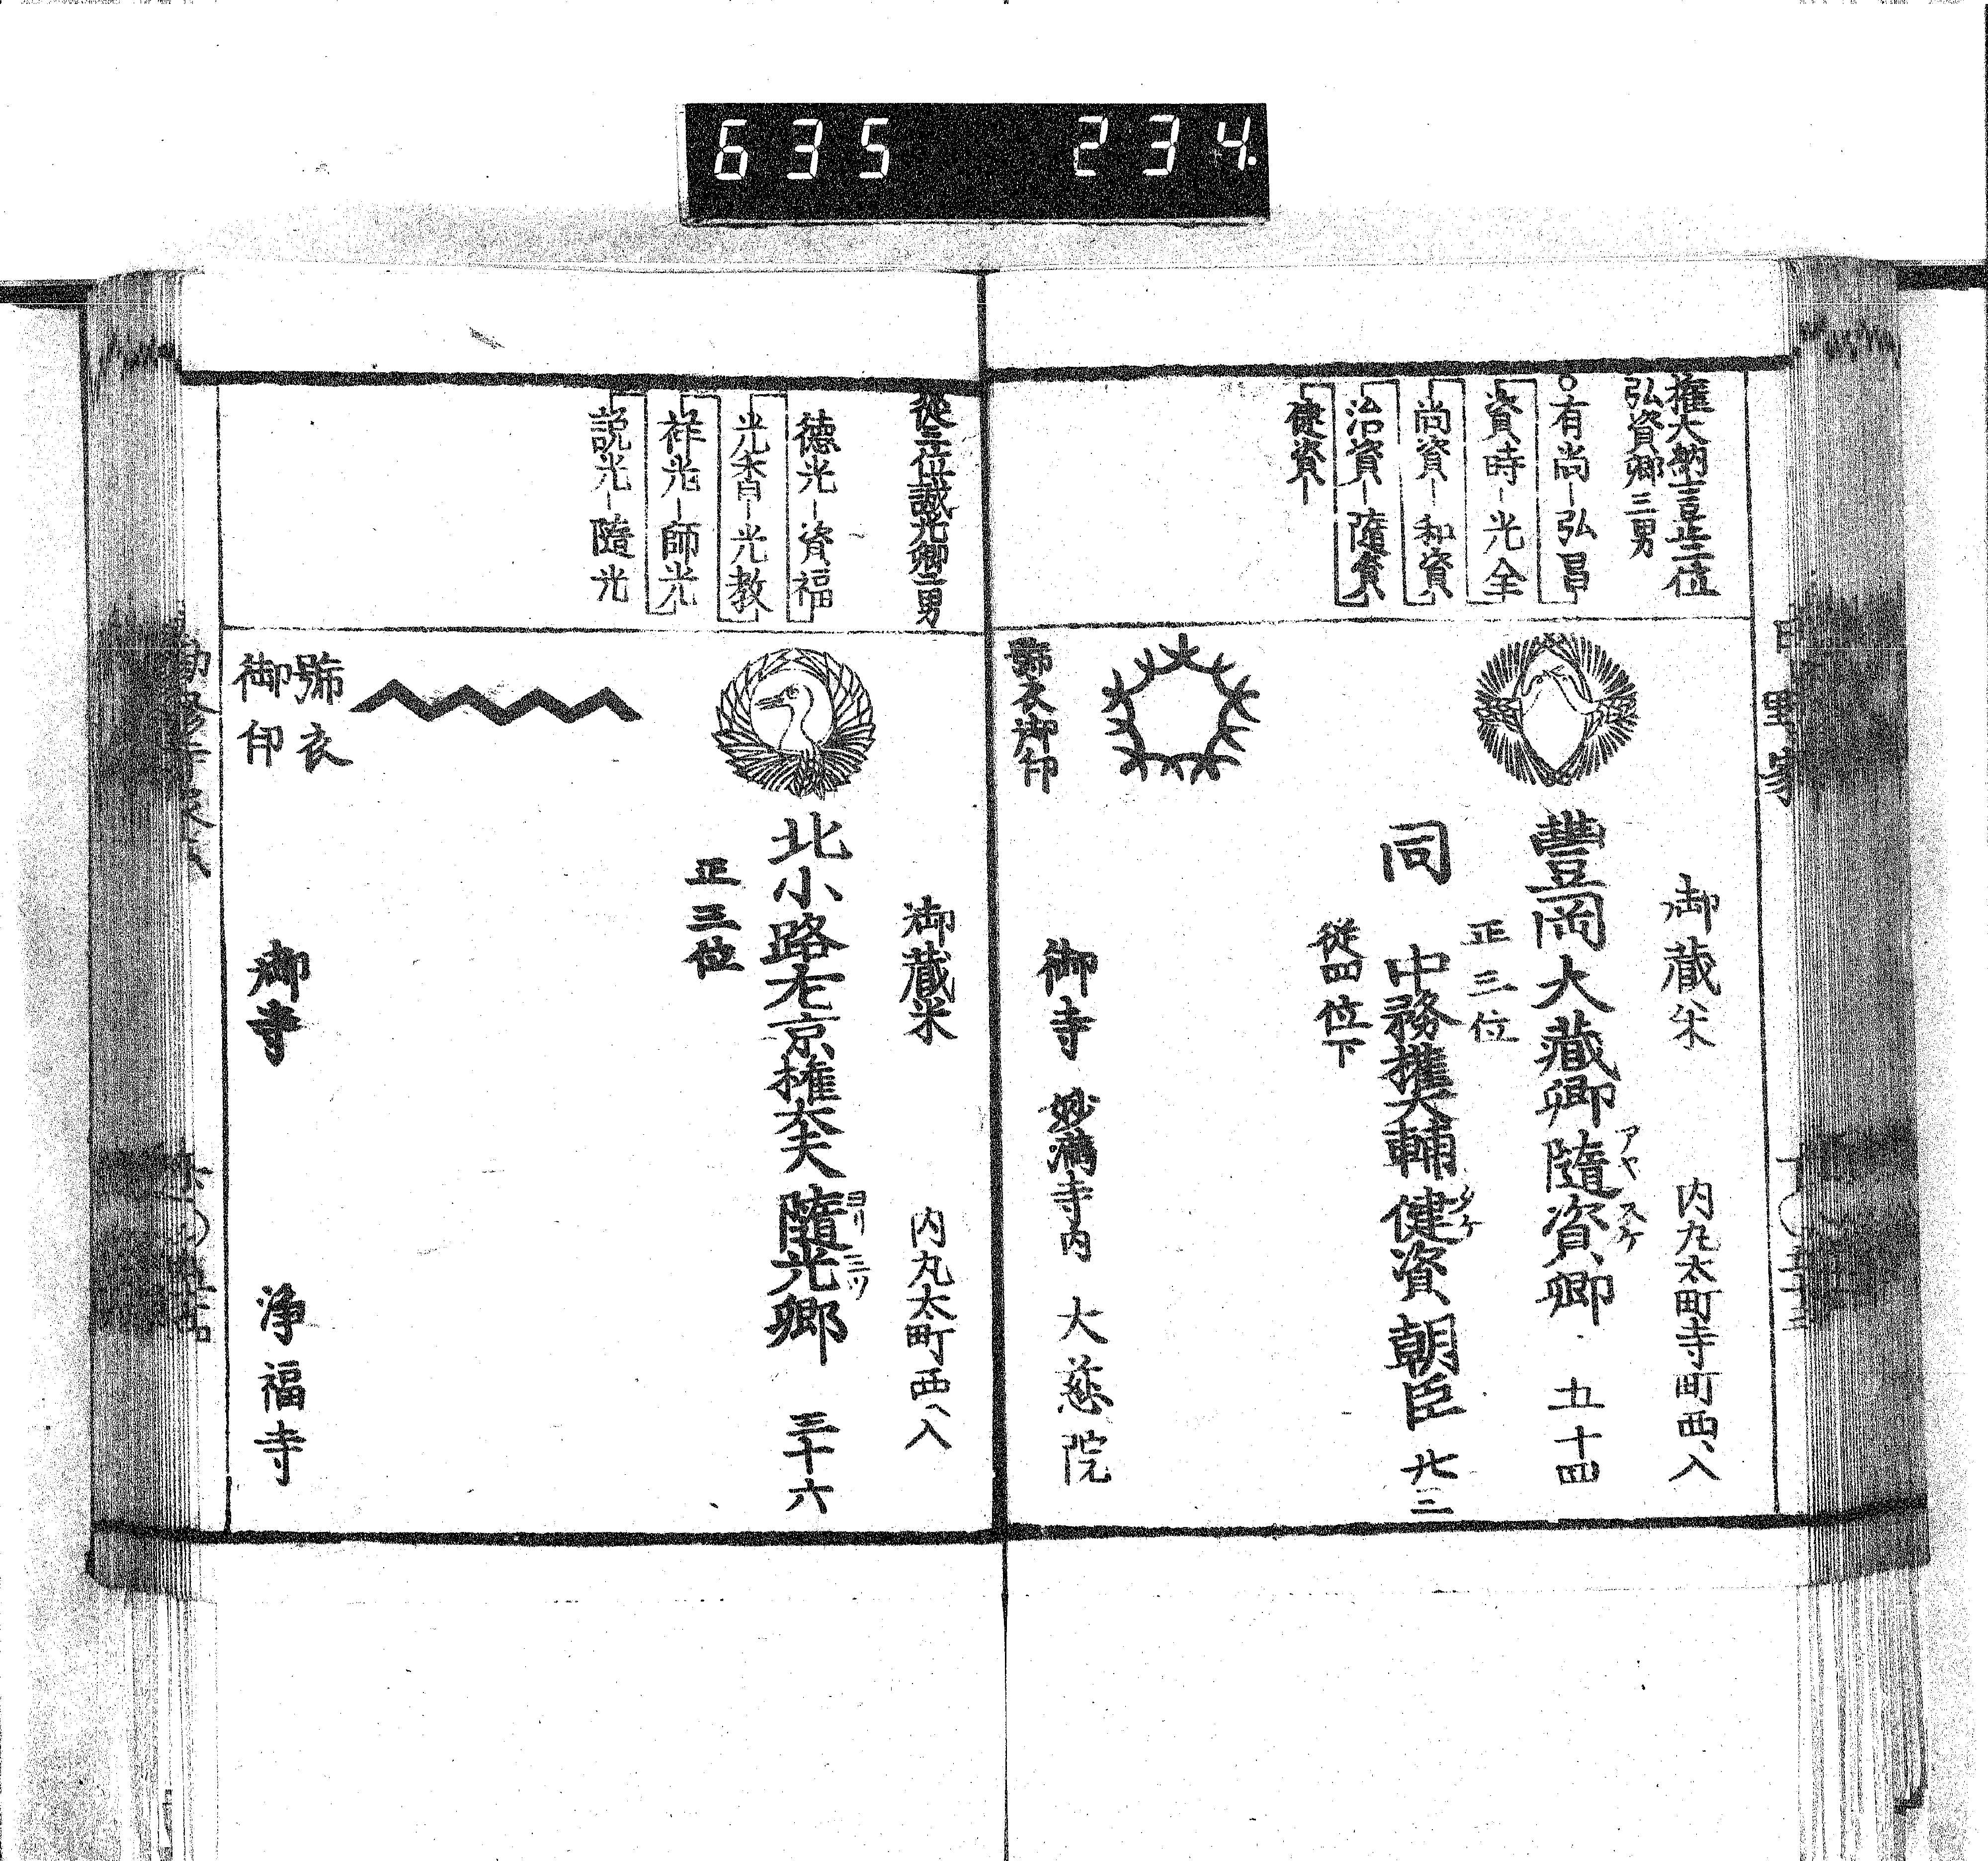 635 234
權大納言正三位
弘資卿三男
○有尚-弘昌
資時-光全
尚資-和資
治資-隨資
健資-
御蔵米
内丸太町寺町西ヘ入
豐岡大藏卿隨資卿 五十四
アヤ スケ
正三位
同 中務權大輔健資朝臣 廾二
タケ
從四位下
號衣御印
御寺 妙満寺内 大慈院
從三位誠光卿二男
德光-資福
光香-光教
祥光-師光
説光-隨光
御蔵米
内丸太町西ヘ入
北小路左京權大夫隨光卿 三十六
ヨリ ミツ
正三位
號衣
御印
御寺 淨福寺